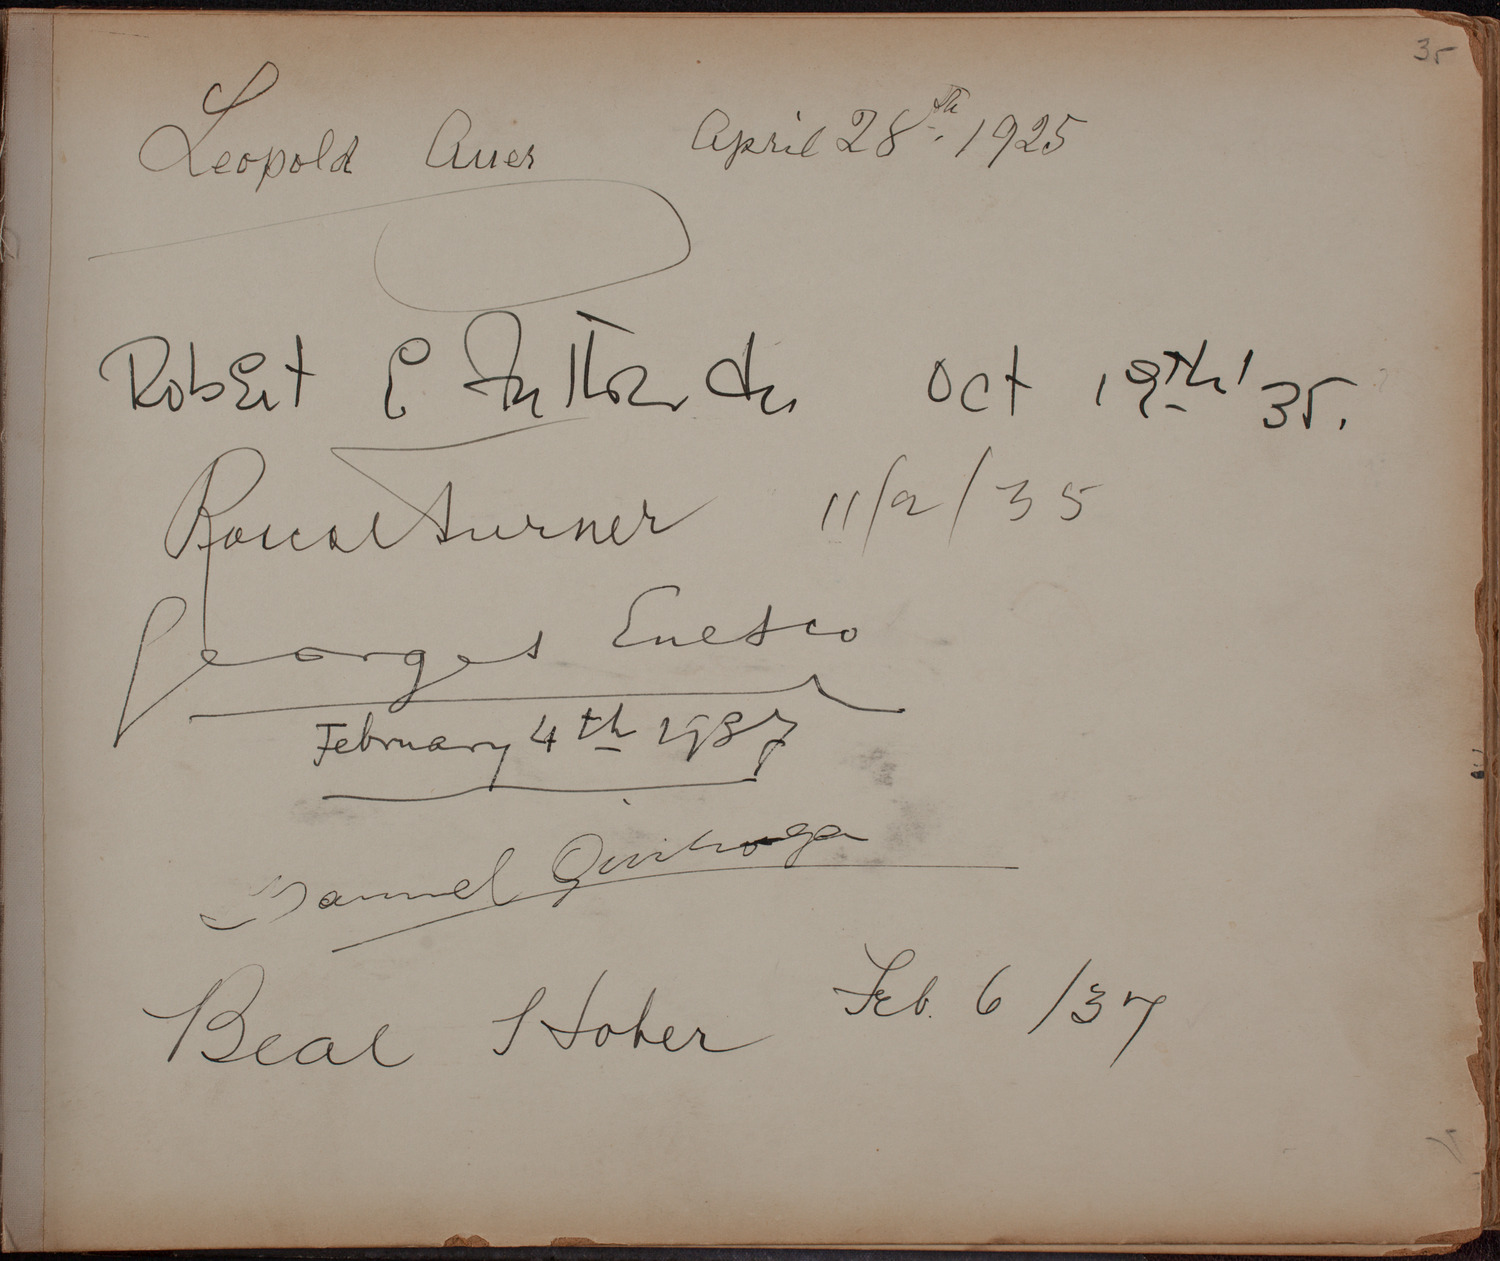 35
Leopold Auer April 28th. 1925
Robert E Oct 19th '35.
Roscoe Turner 11/2/35
Georges Enesco
February 4th 1937
Manuel Quiroga
Beal Hober Feb. 6 /37